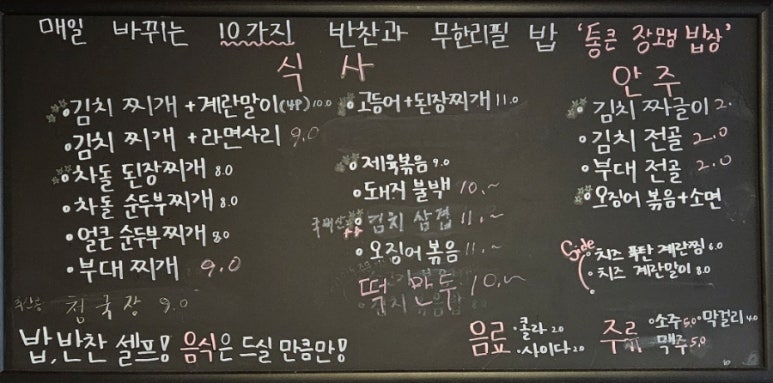 매일 바뀌는 10가지 반찬과 무한리필 밥 '통큰 장모밥상'
식사
김치 찌개 + 계란말이(4P) 10.0
김치 찌개 + 라면사리 9.0
차돌 된장찌개 8.0
차돌 순두부찌개 8.0
얼큰 순두부찌개 8.0
부대 찌개 9.0
청국장 9.0
고등어 + 된장찌개 11.0
제육볶음 9.0
돼지 불백 10.~
국내산 김치 삼겹 11.~
오징어 볶음 11.~
떡 만두 10.~
안주
김치 짜글이 2.
김치 전골 2.0
부대 전골 2.0
오징어 볶음 + 소면
Side
치즈 폭탄 계란찜 6.0
치즈 계란말이 8.0
밥, 반찬 셀프! 음식은 드실 만큼만!
음료
콜라 2.0
사이다 2.0
주류
소주 5.0 막걸리 4.0
맥주 5.0